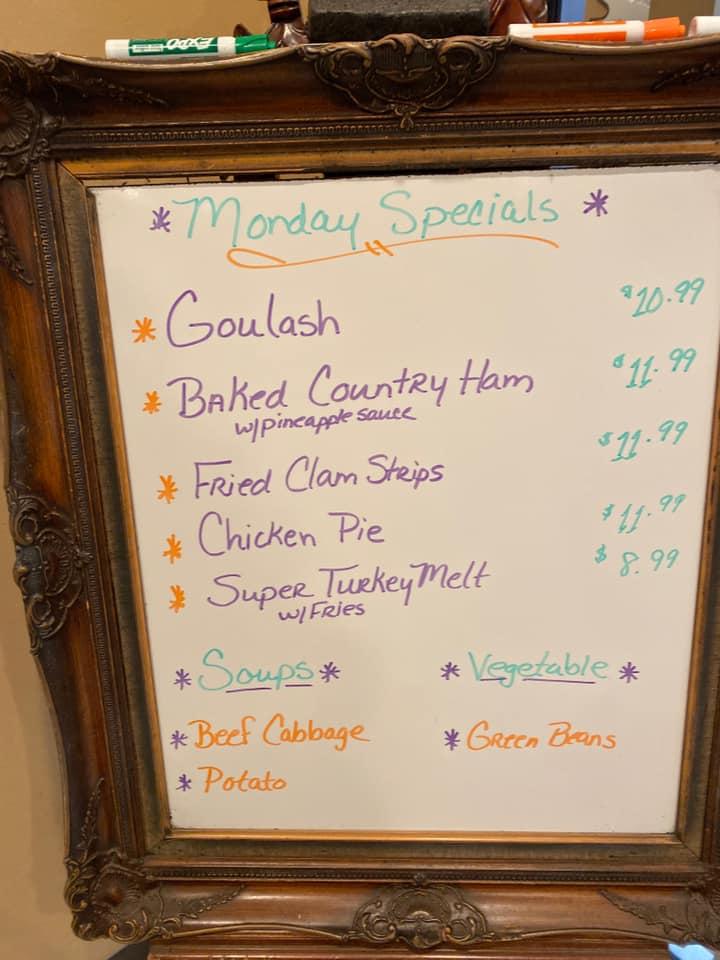 EXPO
* Monday Specials *
* Goulash $10.99
* Baked Country Ham $11.99
w/pineapple sauce
* Fried Clam Strips $11.99
* Chicken Pie $11.99
* Super Turkey Melt $8.99
w/Fries
* Soups * * Vegetable *
* Beef Cabbage * Green Beans
* Potato